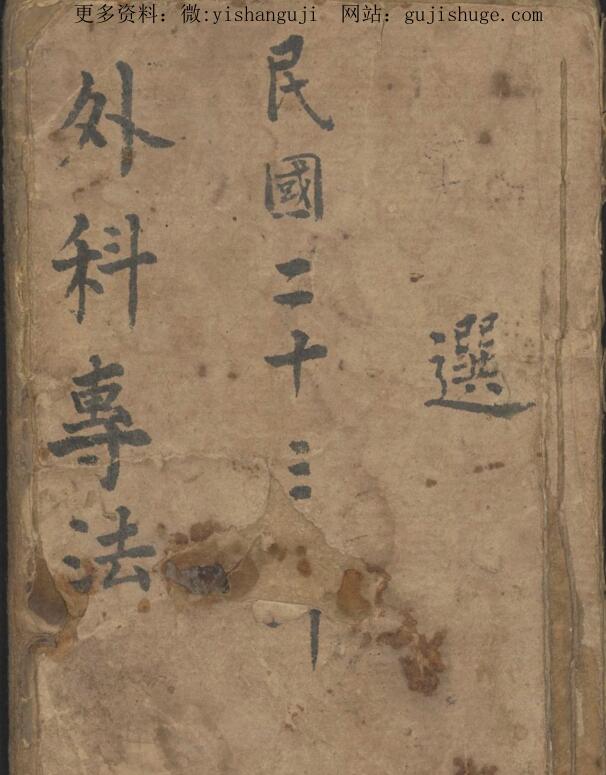 更多资料：微:yishanguji 网站：gujishuge.com
選
民國二十三
外科專法